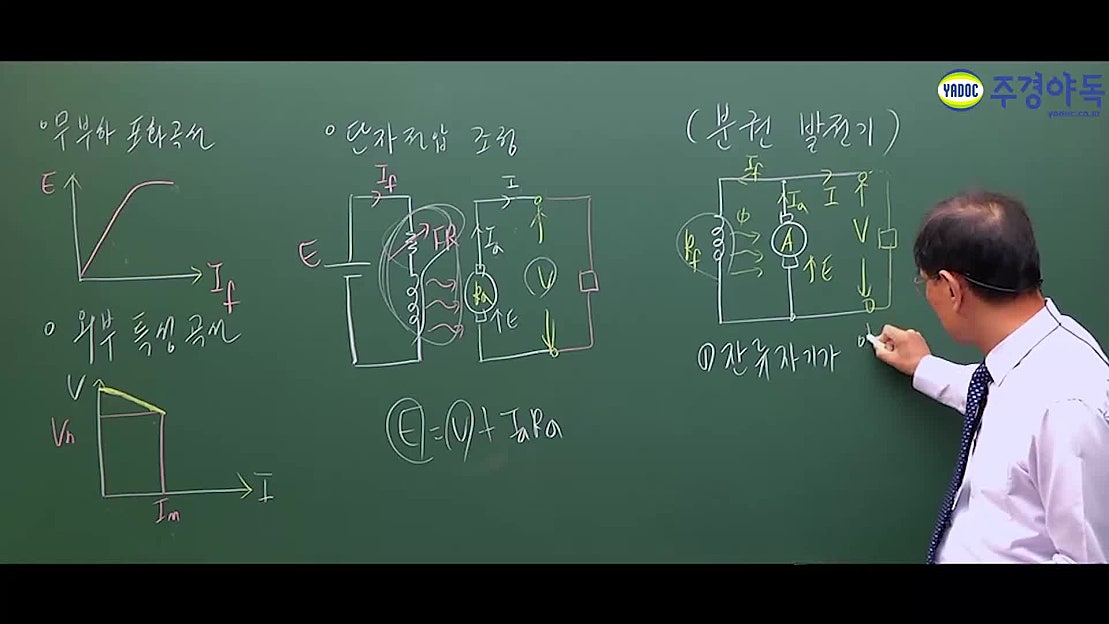 YADOC 주경야독
yadoc.co.kr
° 무부하 포화곡선
E
I_f
° 외부 특성 곡선
V
V_n
I_n
I
° 단자전압 조정
I_f
I
E
FR
I_a
R_a
↑E
V
E = V + I_aR_a
(분권 발전기)
I_f
I_a
I
R_f
φ
A
↑E
V
① 잔류자기가